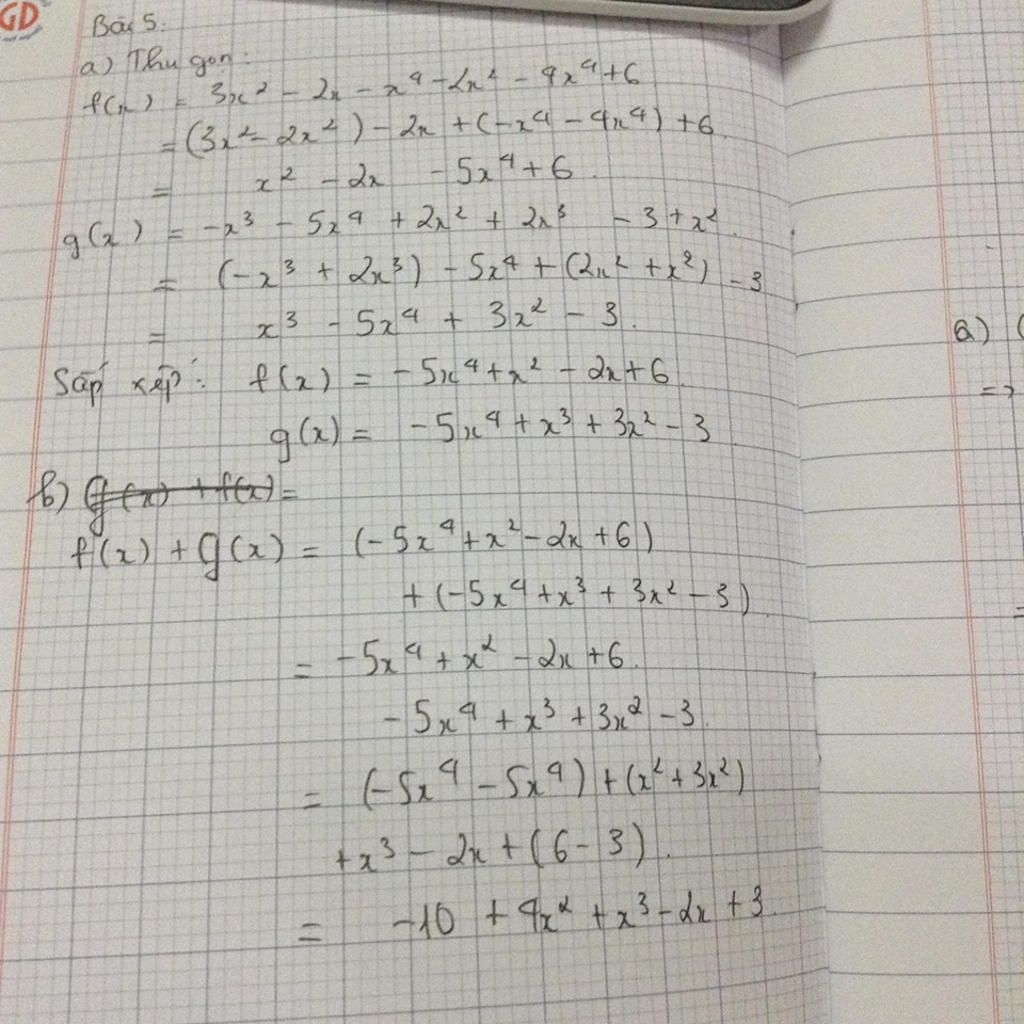 GD
Bài 5.
a) Thu gọn:
f(x) = 3x² - 2x - x⁴ - 2x² - 4x⁴ + 6
= (3x² - 2x²) - 2x + (-x⁴ - 4x⁴) + 6
= x² - 2x - 5x⁴ + 6.
g(x) = -x³ - 5x⁴ + 2x² + 2x³ - 3 + x².
= (-x³ + 2x³) - 5x⁴ + (2x² + x²) - 3
= x³ - 5x⁴ + 3x² - 3.
Sắp xếp: f(x) = -5x⁴ + x² - 2x + 6
g(x) = -5x⁴ + x³ + 3x² - 3
b) g(x) + f(x) =
f(x) + g(x) = (-5x⁴ + x² - 2x + 6)
+ (-5x⁴ + x³ + 3x² - 3)
= -5x⁴ + x² - 2x + 6.
-5x⁴ + x³ + 3x² - 3.
= (-5x⁴ - 5x⁴) + (x² + 3x²)
+ x³ - 2x + (6 - 3).
= -10 + 4x² + x³ - 2x + 3.
a) (
=>
=